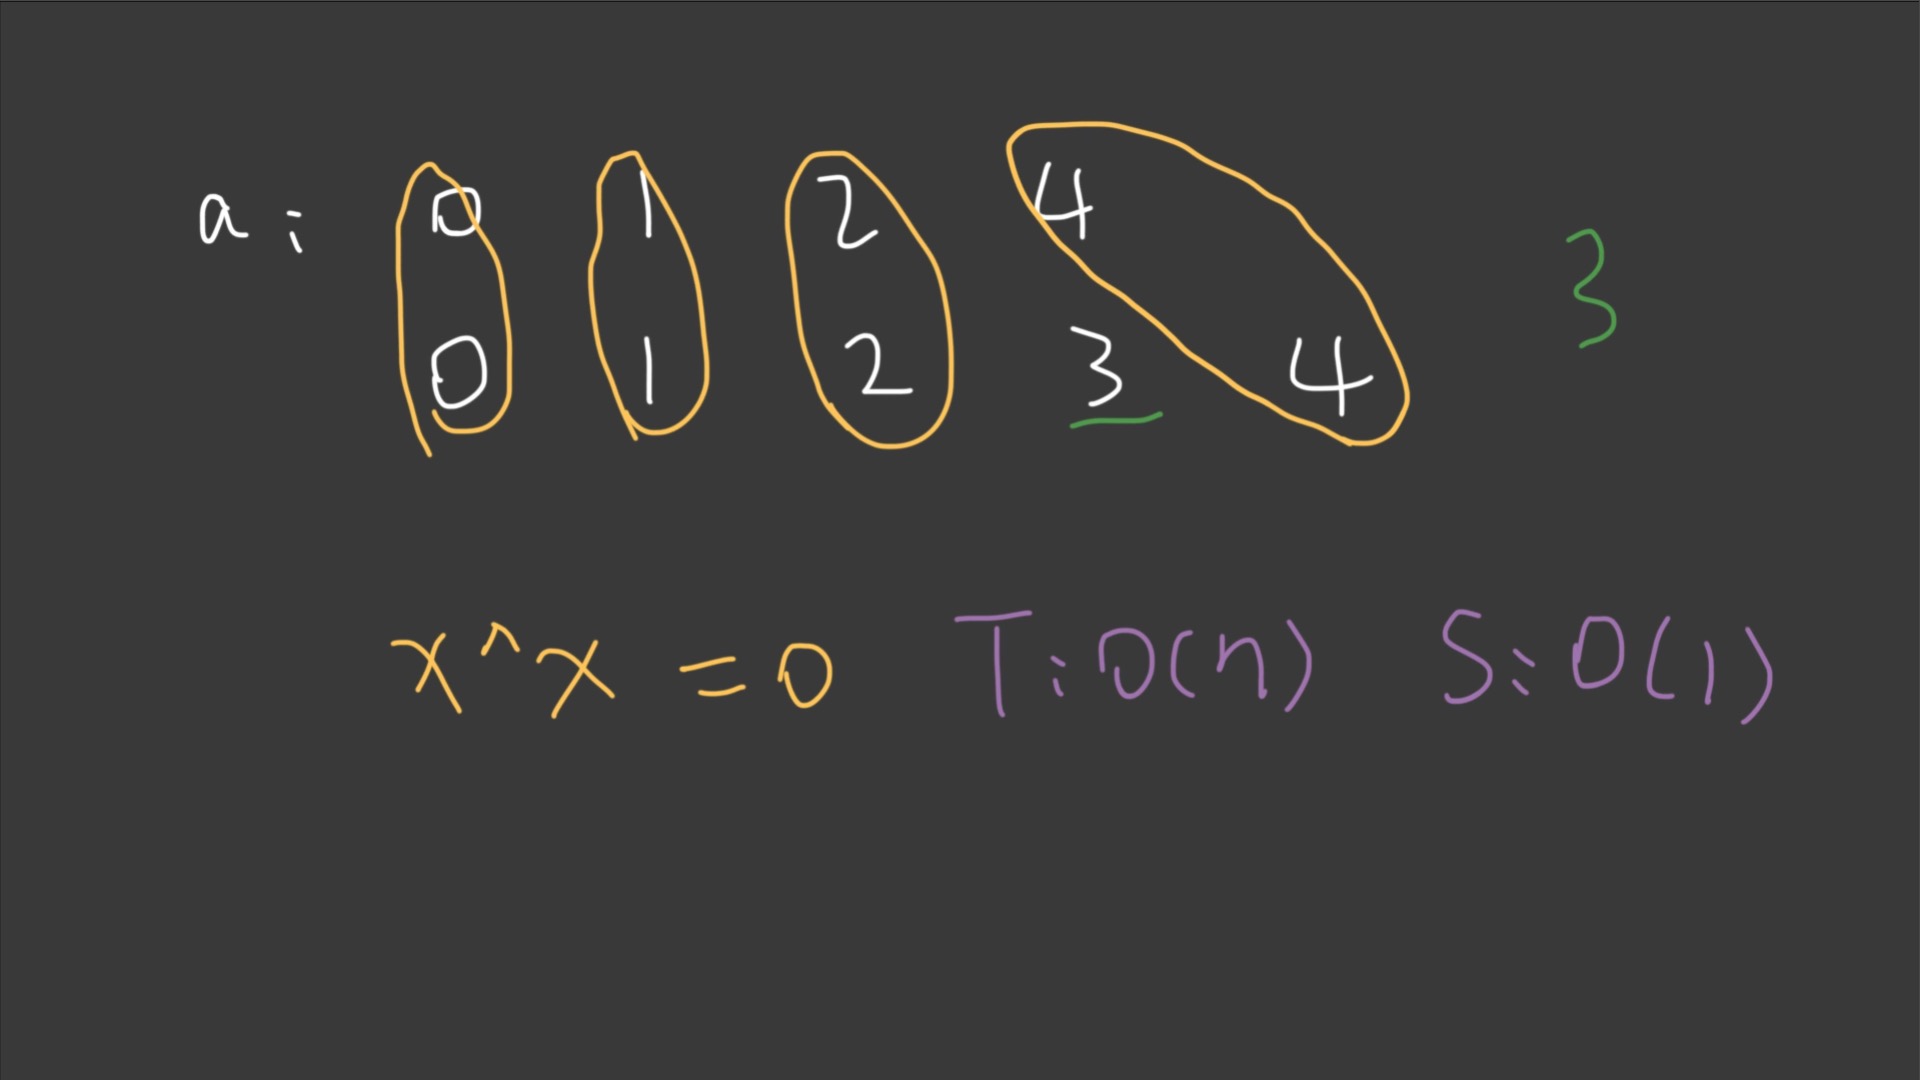 a: 0 1 2 4
3
0 1 2 3 4
x^x = 0 T: O(n) S: O(1)